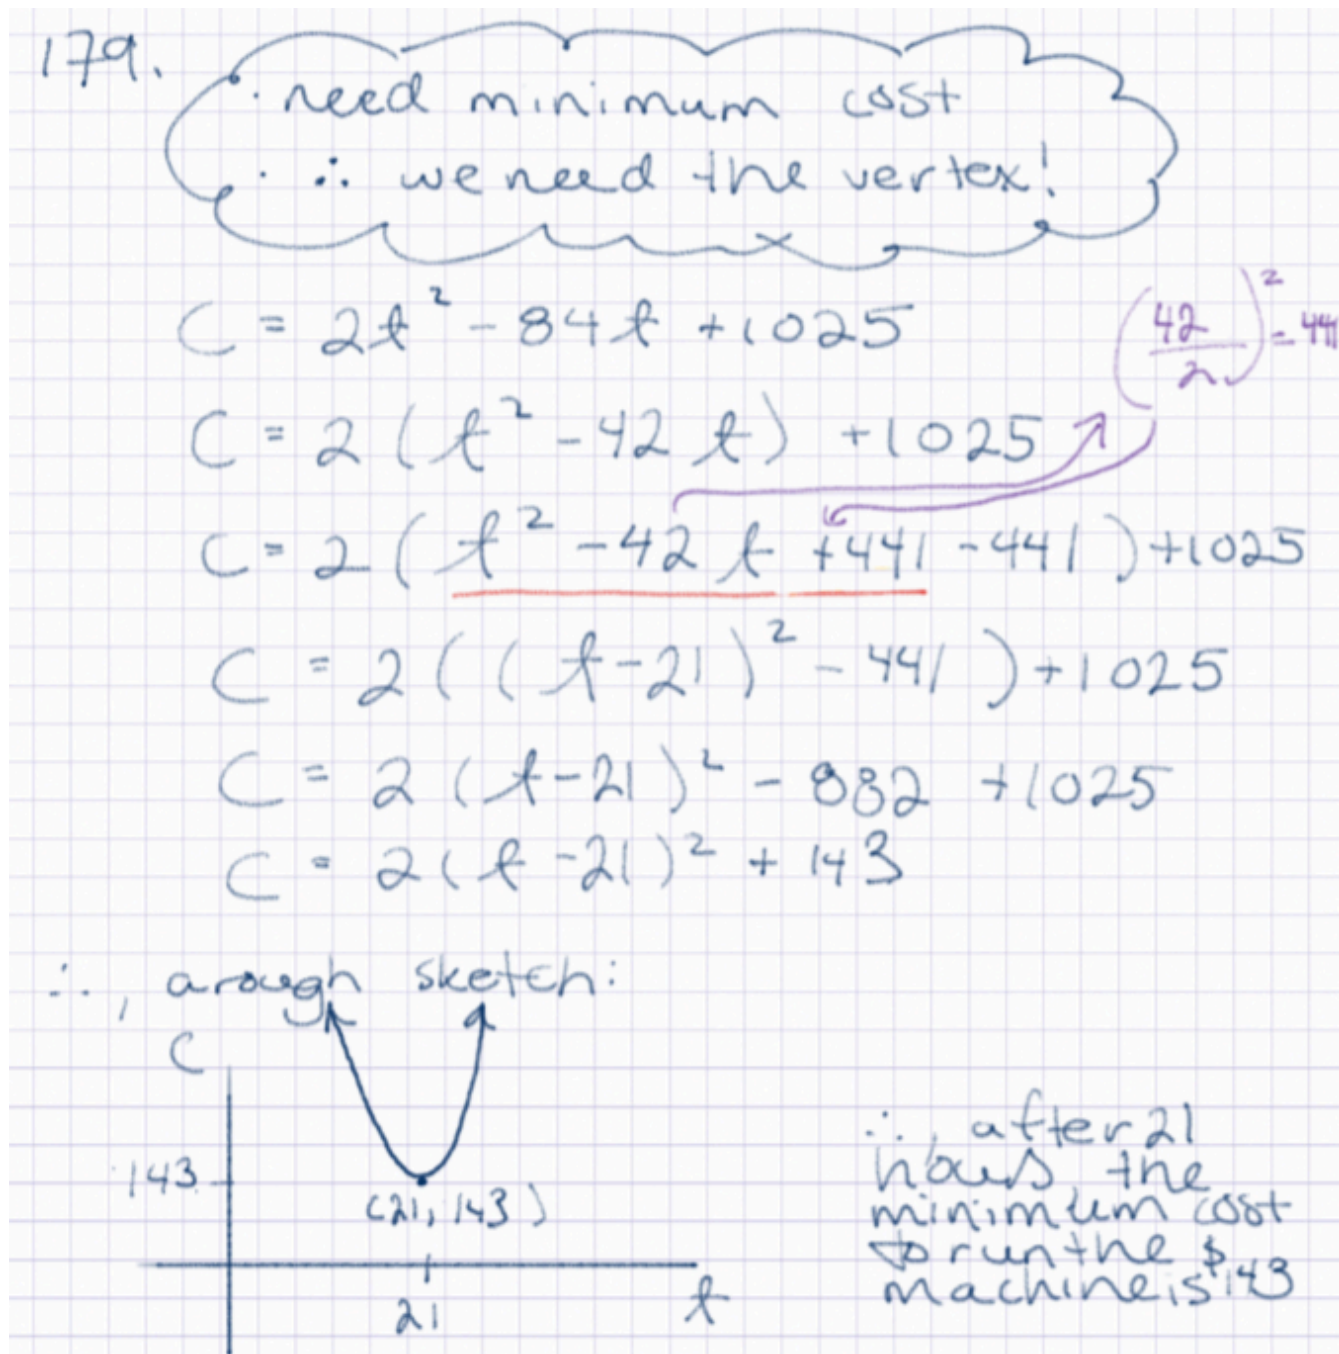 179.
· need minimum cost
· ∴ we need the vertex!
C = 2t² - 84t + 1025
(42/2)² = 441
C = 2(t² - 42t) + 1025
C = 2(t² - 42t + 441 - 441) + 1025
C = 2((t - 21)² - 441) + 1025
C = 2(t - 21)² - 882 + 1025
C = 2(t - 21)² + 143
∴, a rough sketch:
C
143
(21, 143)
21
t
∴, after 21
hours, the
minimum cost
to run the
machine is $143